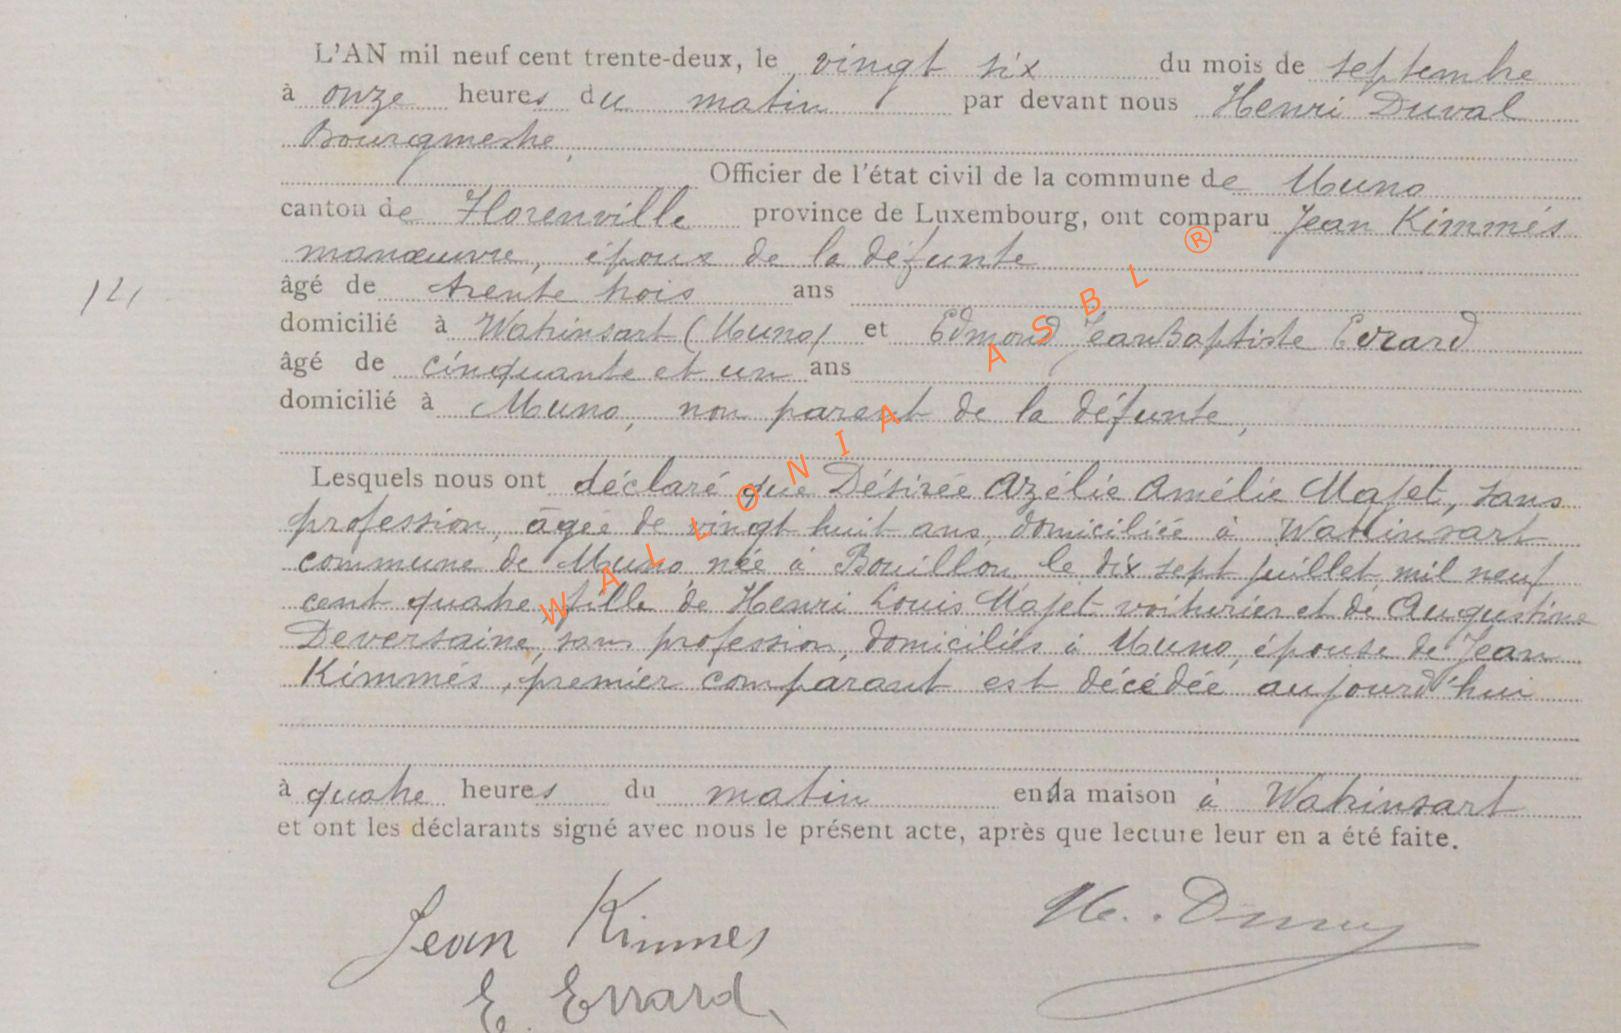 L'AN mil neuf cent trente-deux, le vingt six du mois de septembre
à onze heures du matin par devant nous Henri Duval
Bourgmestre,
Officier de l'état civil de la commune de Muno
canton de Florenville province de Luxembourg, ont comparu Jean Kimmés
manœuvre, époux de la défunte
âgé de trente trois ans
12,
domicilié à Watrinsart (Muno) et Edmond Jean Baptiste Evrard
âgé de cinquante et un ans
domicilié à Muno, non parent de la défunte,
Lesquels nous ont déclaré que Désirée Azélie Amélie Majet, sans
profession, âgée de vingt huit ans, domiciliée à Watrinsart
commune de Muno née à Bouillon le dix sept juillet mil neuf
cent quatre, fille de Henri Louis Majet voiturier et de Augustine
Deversaine, sans profession, domiciliés à Muno, épouse de Jean
Kimmés, premier comparant est décédée aujourd'hui
à quatre heures du matin en la maison à Watrinsart
et ont les déclarants signé avec nous le présent acte, après que lecture leur en a été faite.
Jean Kimmes
H. Duval
E. Evrard
WALLONIA ASBL ®